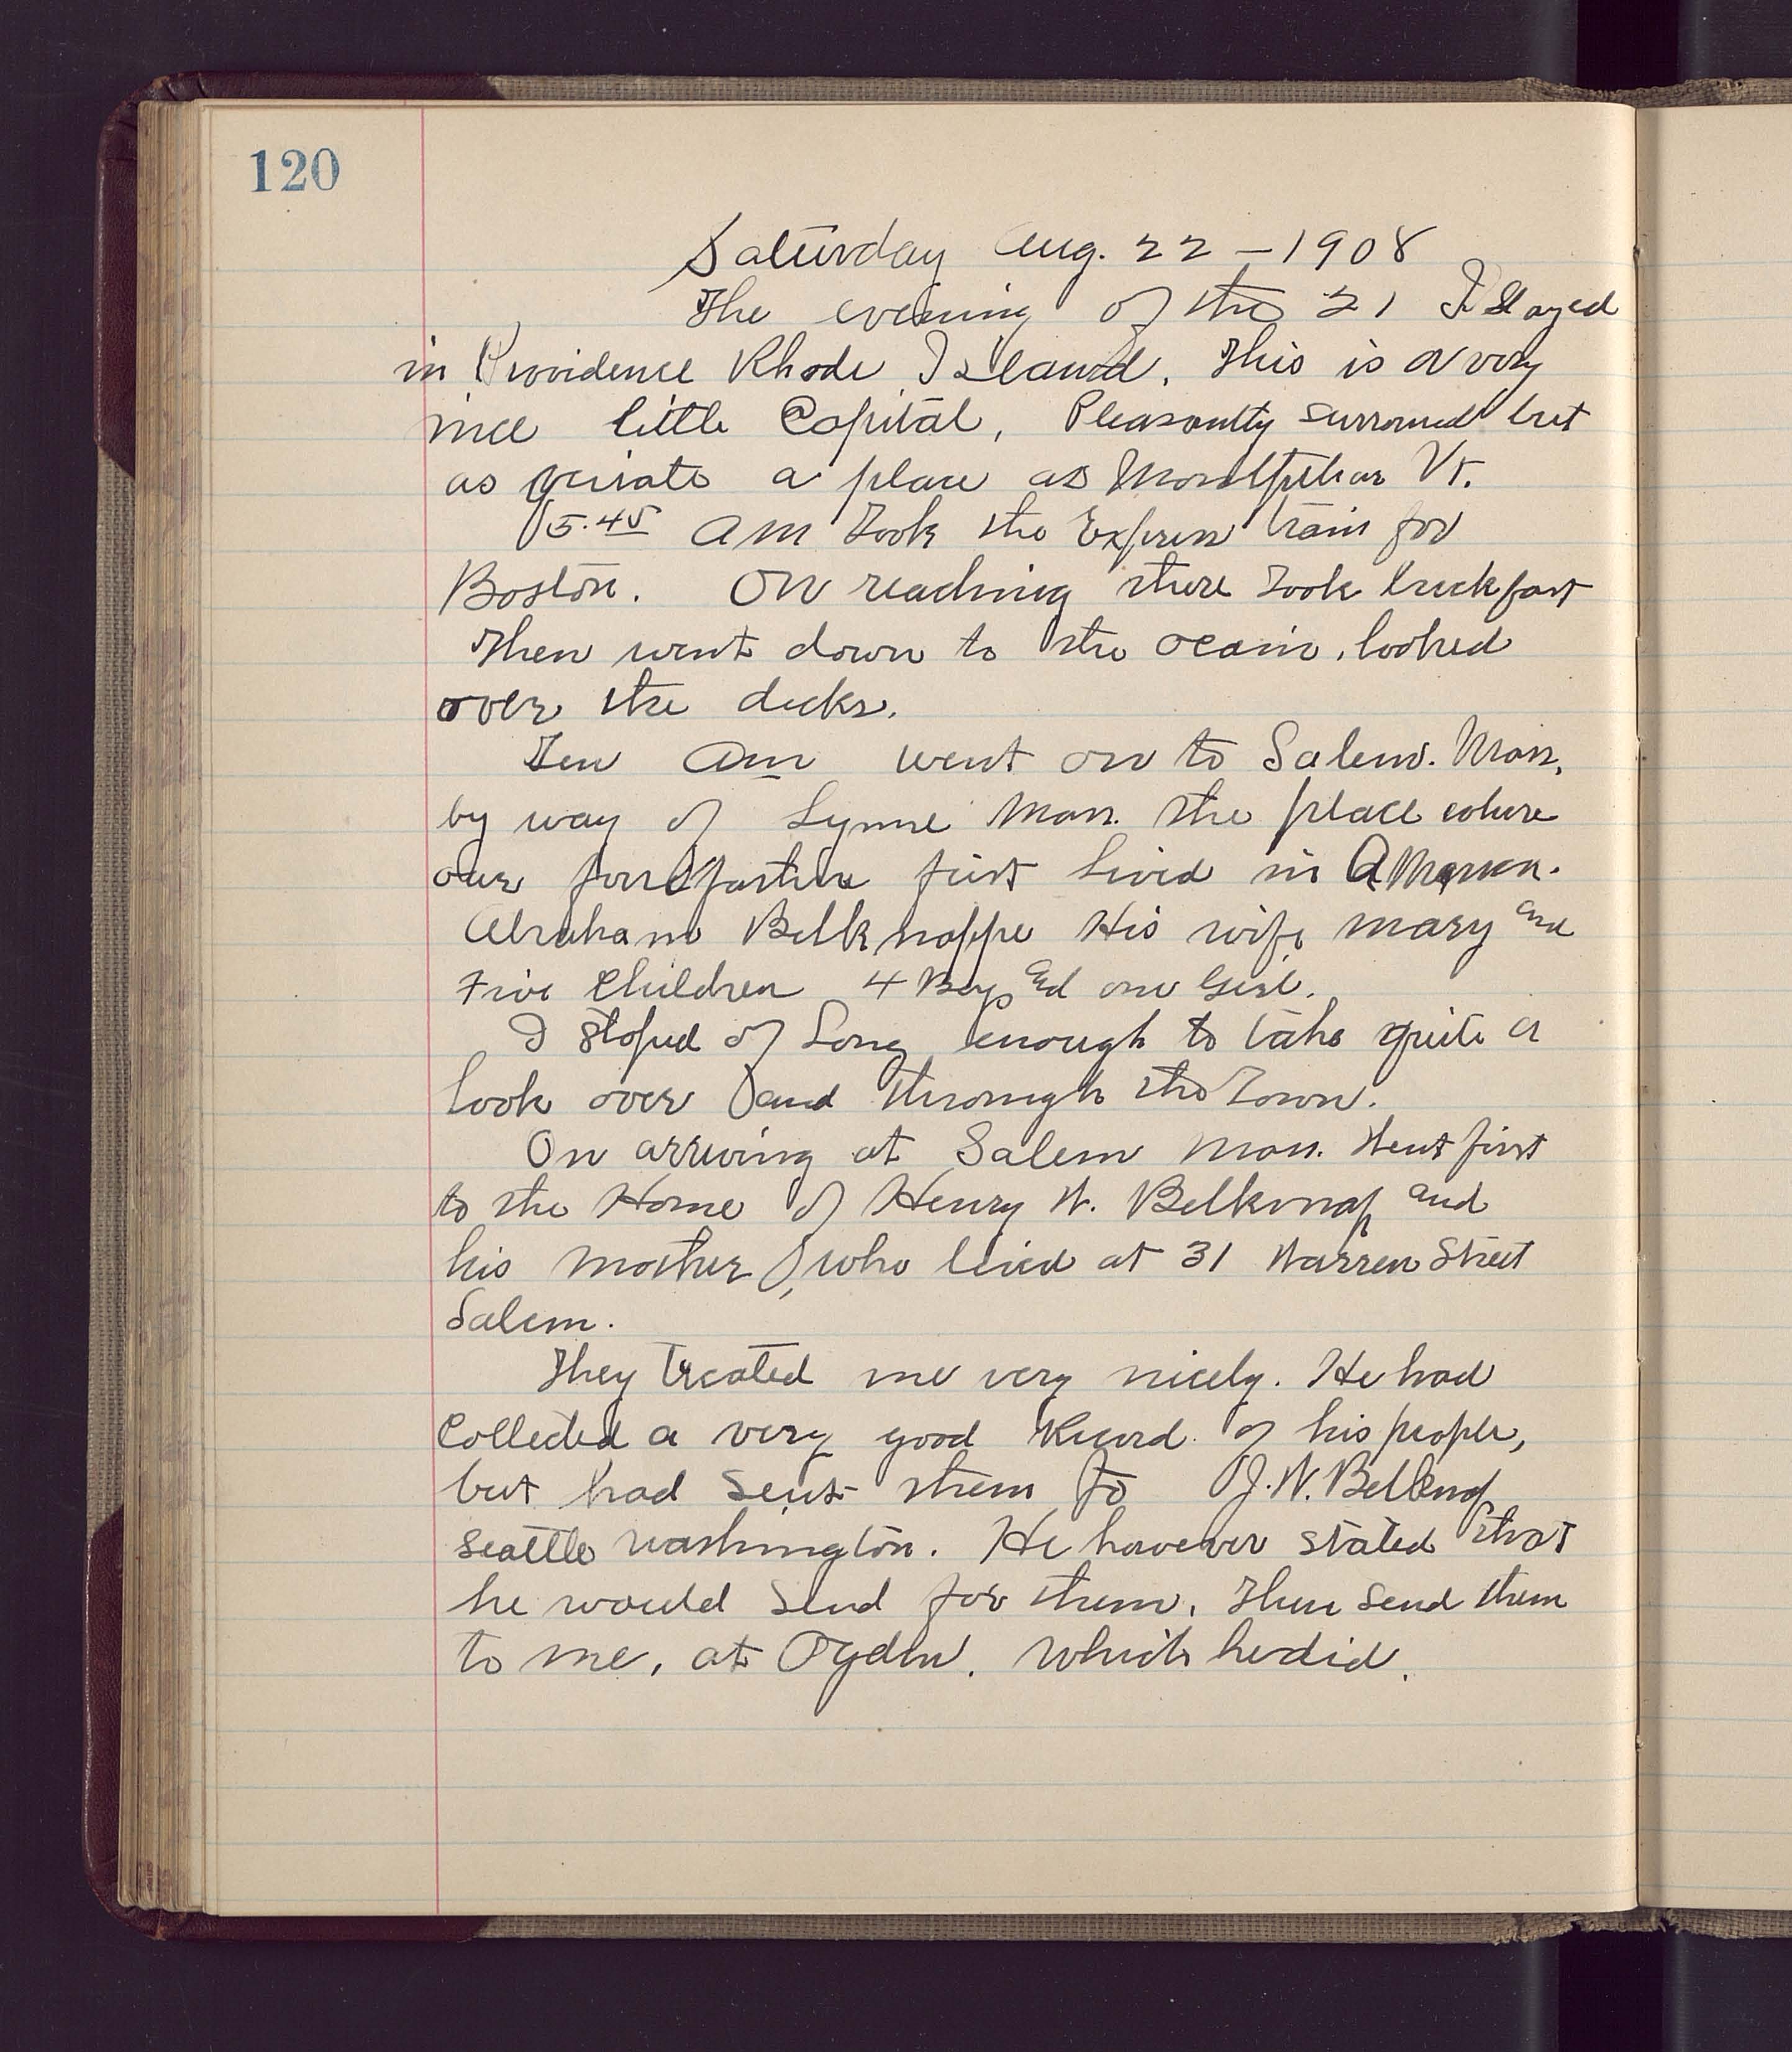 120
Saturday Aug. 22 - 1908
The evening of the 21 I stayed
in Providence Rhode Island. This is a very
nice little Capital, Pleasantly surround but
as private a place as Montpelier Vt.
5.45 AM Took the Express train for
Boston. On reaching there Took breckfast
Then went down to the oceain, looked
over the decks.
Ten Am went on to Salem. Mass,
by way of Lynne Mass. the place where
our forefathers first lived in America.
Abraham Belknappe His wife Mary and
Five Children 4 Boys and one Girl.
I stoped of Long enough to take quite a
look over and through the Town.
On arriving at Salem Mass. Went first
to the Home of Henry W. Belknap and
his Mother, who lived at 31 Warren Street
Salem.
They treated me very nicely. He had
Collected a very good Record of his people,
but had sent them to J. W. Belknap
Seattle Washington. He however stated that
he would send for them, then send them
to me, at Ogden. Which he did.